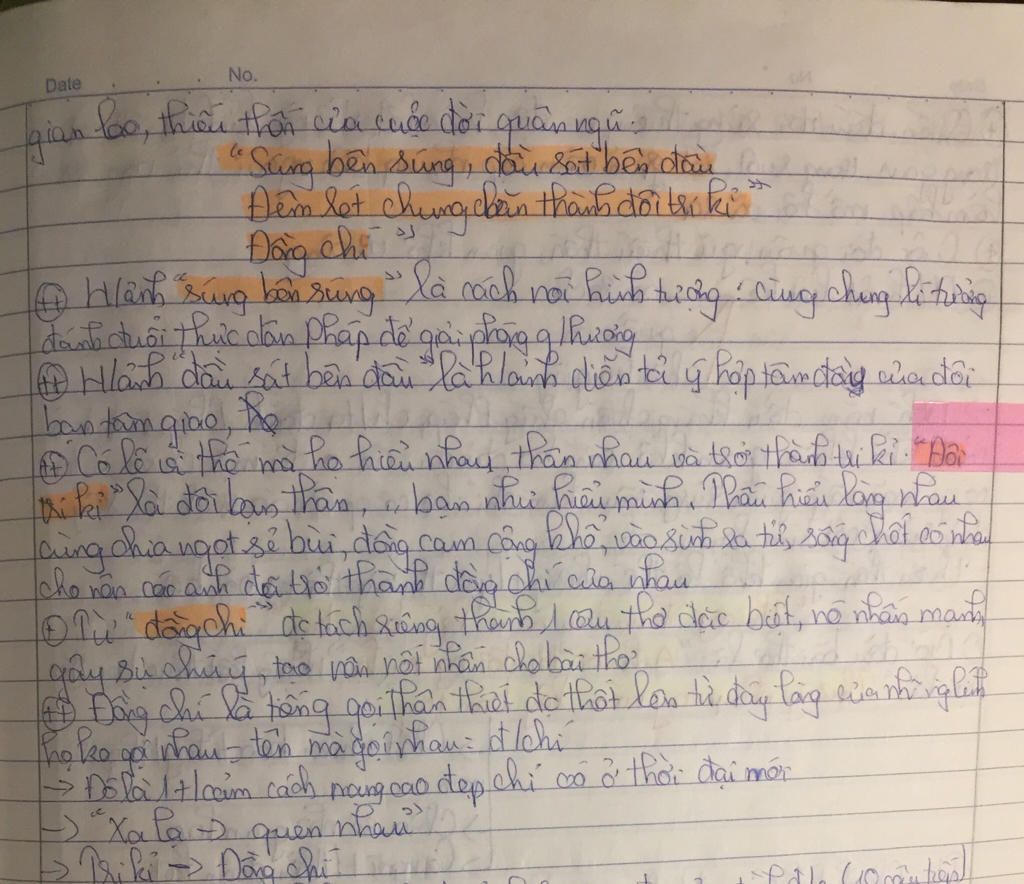 Date No.
gian lao, thiếu thốn của cuộc đời quân ngũ:
"Súng bên súng, đầu sát bên đầu
Đêm rét chung chăn thành đôi tri kỉ"
Đồng chí"
H/ảnh "súng bên súng" là cách nói hình tượng: cùng chung lí tưởng
đánh đuổi thực dân Pháp để giải phóng q/hương
H/ảnh "đầu sát bên đầu" là h/ảnh diễn tả ý hợp tâm đầu của đôi
bạn tâm giao, họ
Có lẽ vì thế mà họ hiểu nhau, thân nhau và trở thành tri kỉ. "Đôi
tri kỉ" là đôi bạn thân, bạn như hiểu mình. Thấu hiểu lòng nhau
cùng chia ngọt sẻ bùi, đồng cam cộng khổ, vào sinh ra tử, sống chết có nhau
cho nên các anh đã trở thành đồng chí của nhau
Từ "đồng chí" đc tách riêng thành 1 câu thơ đặc biệt, nó nhấn mạnh,
gây sự chú ý, tạo nên nốt nhấn cho bài thơ
Đồng chí là tiếng gọi thân thiết đc thốt lên từ đáy lòng của những lính
họ ko gọi nhau = tên mà gọi nhau = đ/chí
→ Đó là 1 t/cảm cách mạng cao đẹp chỉ có ở thời đại mới
→ "Xa lạ → quen nhau"
→ Tri kỉ → Đồng chí